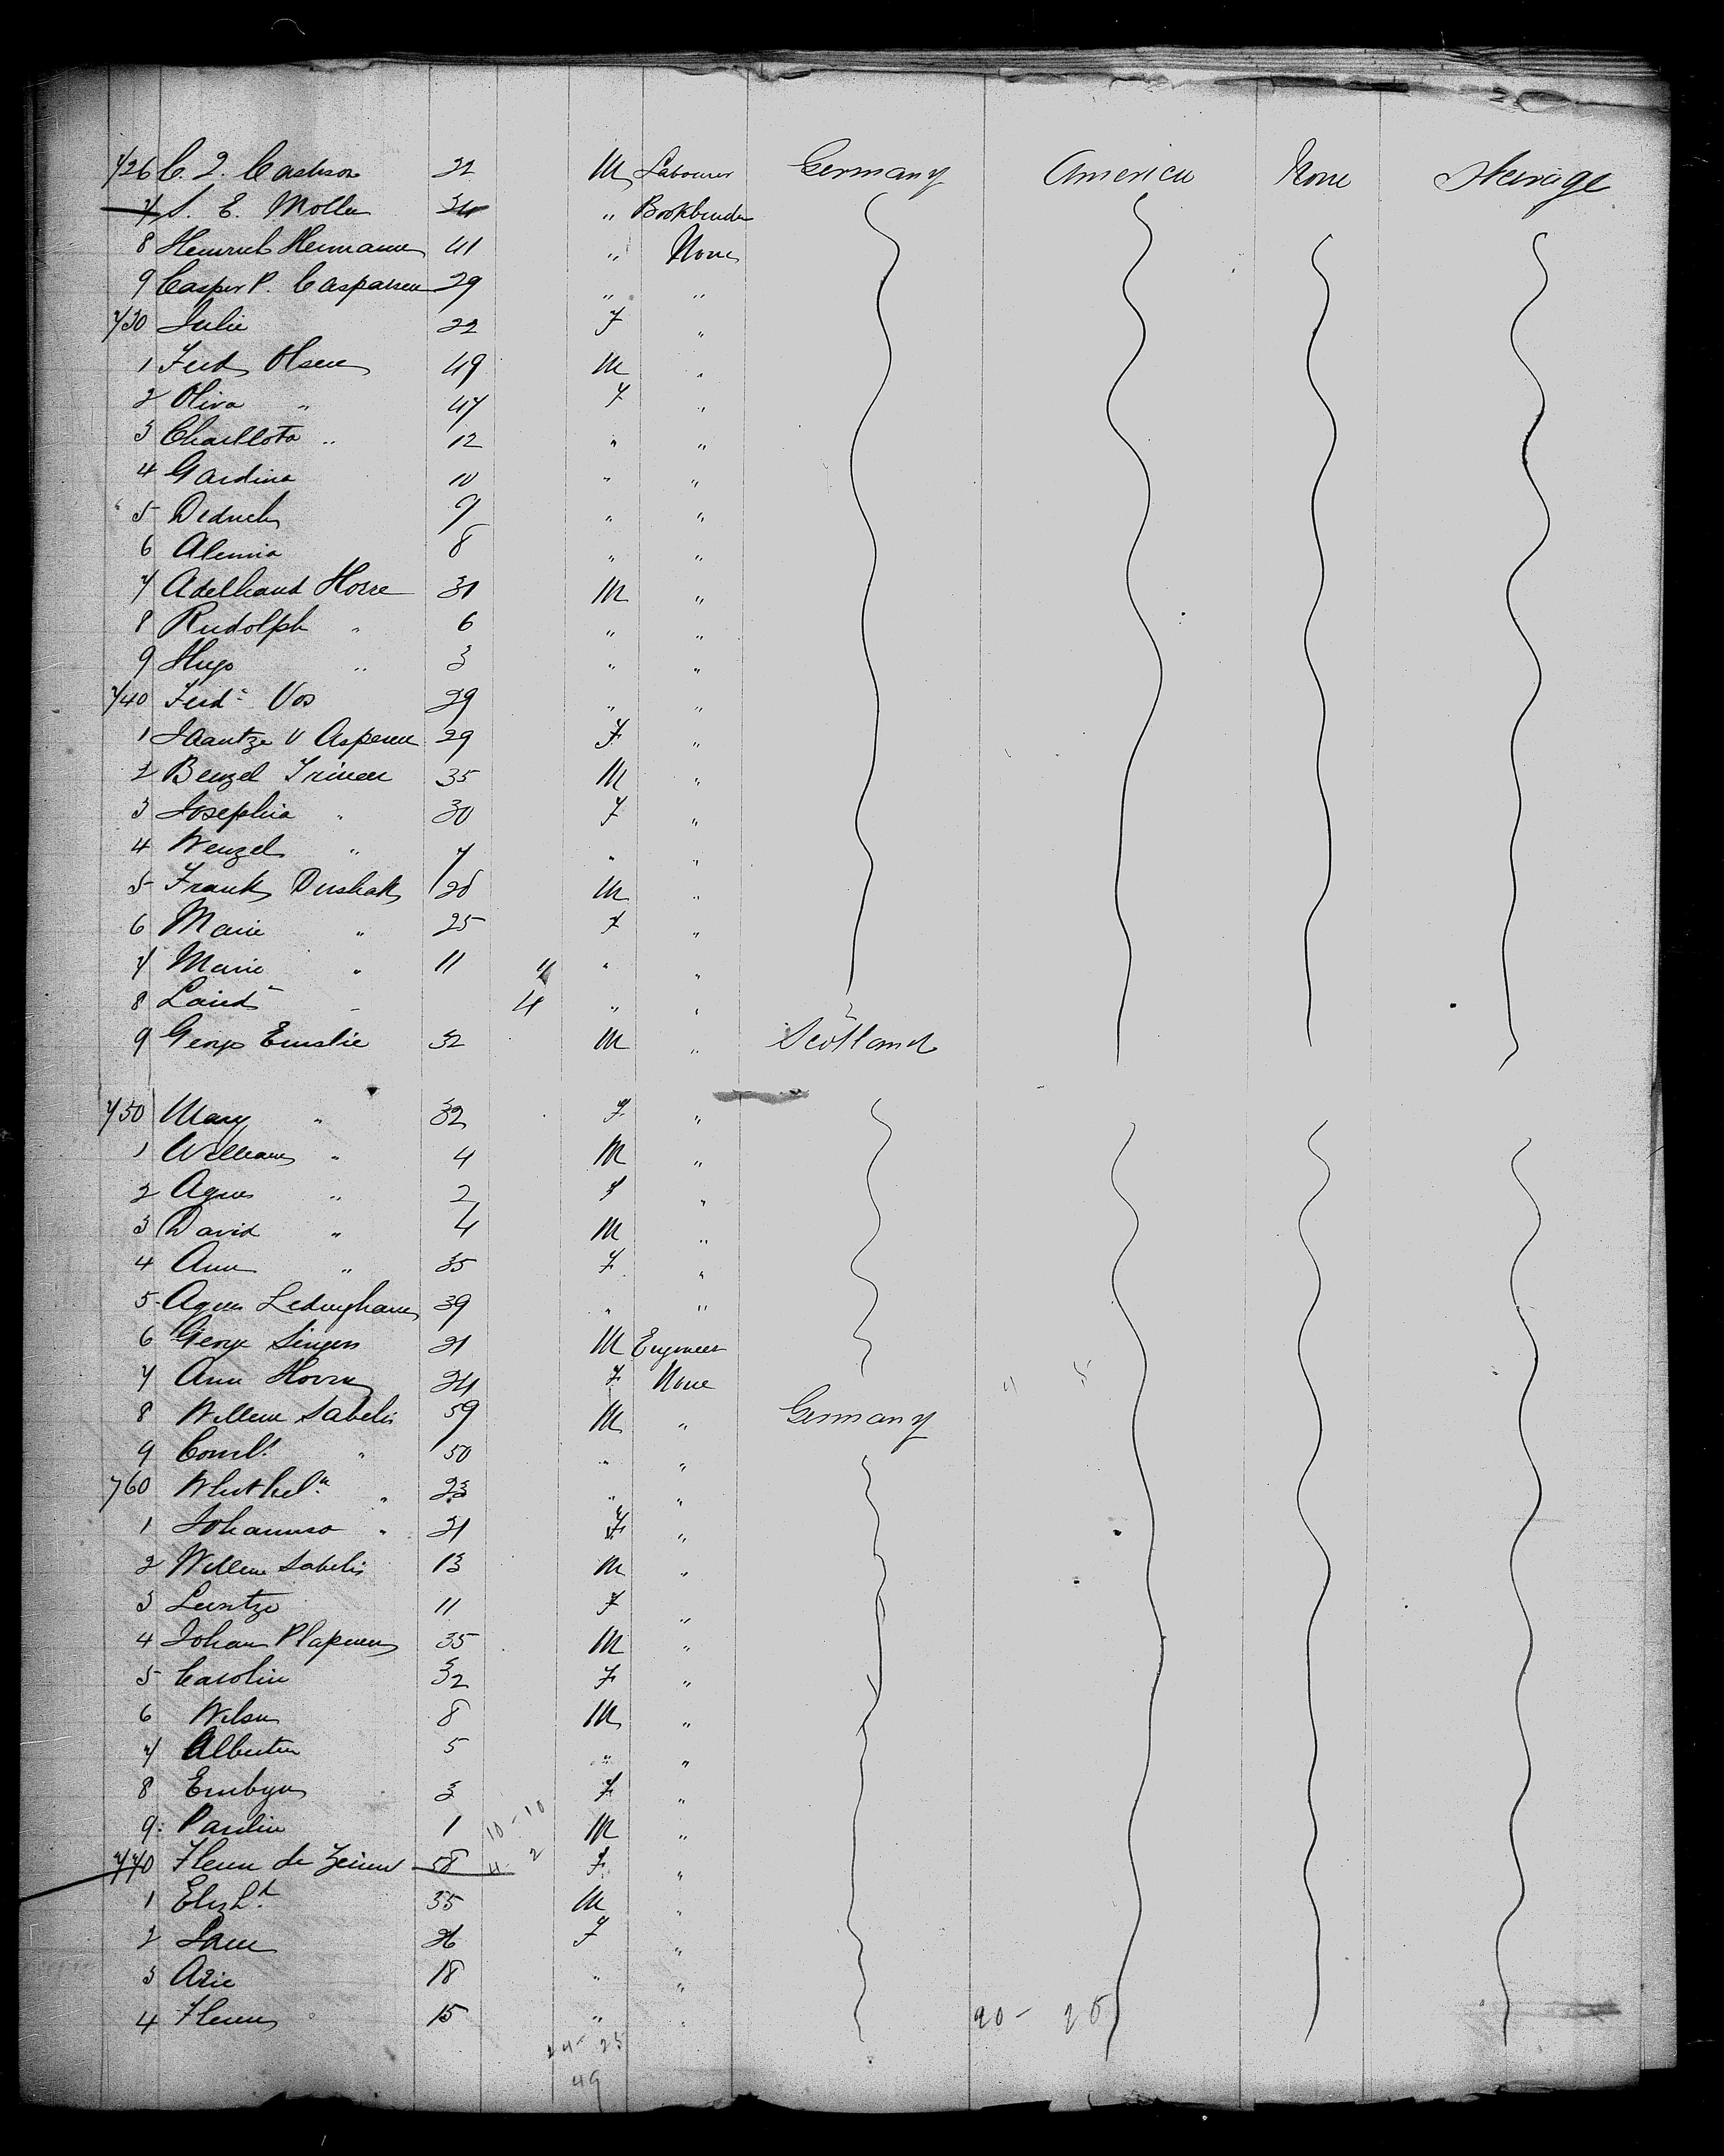 726 C. J. Carlson 22 M Labourer Germany America None Steerage
7 S. E. Moller 34 " Bookbinder
8 Heinrich Hermann 41 " None
9 Casper P. Caspersen 29 " "
730 Julie 22 F "
1 Ferd Olsen 49 M "
2 Oliva " 47 F "
3 Charllota " 12 " "
4 Gardina 10 " "
5 Dedrich 9 " "
6 Alemia 8 " "
7 Adelhaud Horre 31 M "
8 Rudolph " 6 " "
9 Hugo " 3 " "
740 Ferd Vos 29 " "
1 Jaantze V Asperen 29 F "
2 Benzel Trinen 35 M "
3 Josephia " 30 F "
4 Wenzel " 7 " "
5 Frank Dushak 28 M "
6 Marie " 25 F "
7 Marie " 11 " "
8 4 " "
9 George Emslie 32 M " Scotland
750 Mary " 32 F "
1 William " 4 M "
2 Agnes " 2 F "
3 David " 4 M "
4 Ann " 35 F "
5 Agnes Ledingham 39 " "
6 George 21 M Engineer
7 Ann 24 F None
8 Willem Sabelis 59 M " Germany
9 Cornl. " 50 " "
760 " 23 " "
1 Johanna " 21 F "
2 Willem Sabelis 13 M "
3 Leentze 11 F "
4 Johan 35 M "
5 Carolin 32 F "
6 Wilson 8 M "
7 Albertin 5 " "
8 3 F "
9 Paulin 1 M " 10-10
770 de Zeeuw 58 4 2 F "
1 35 M "
2 26 F "
3 Arie 18 " "
4 15 " "
20- 25
24- 25
49